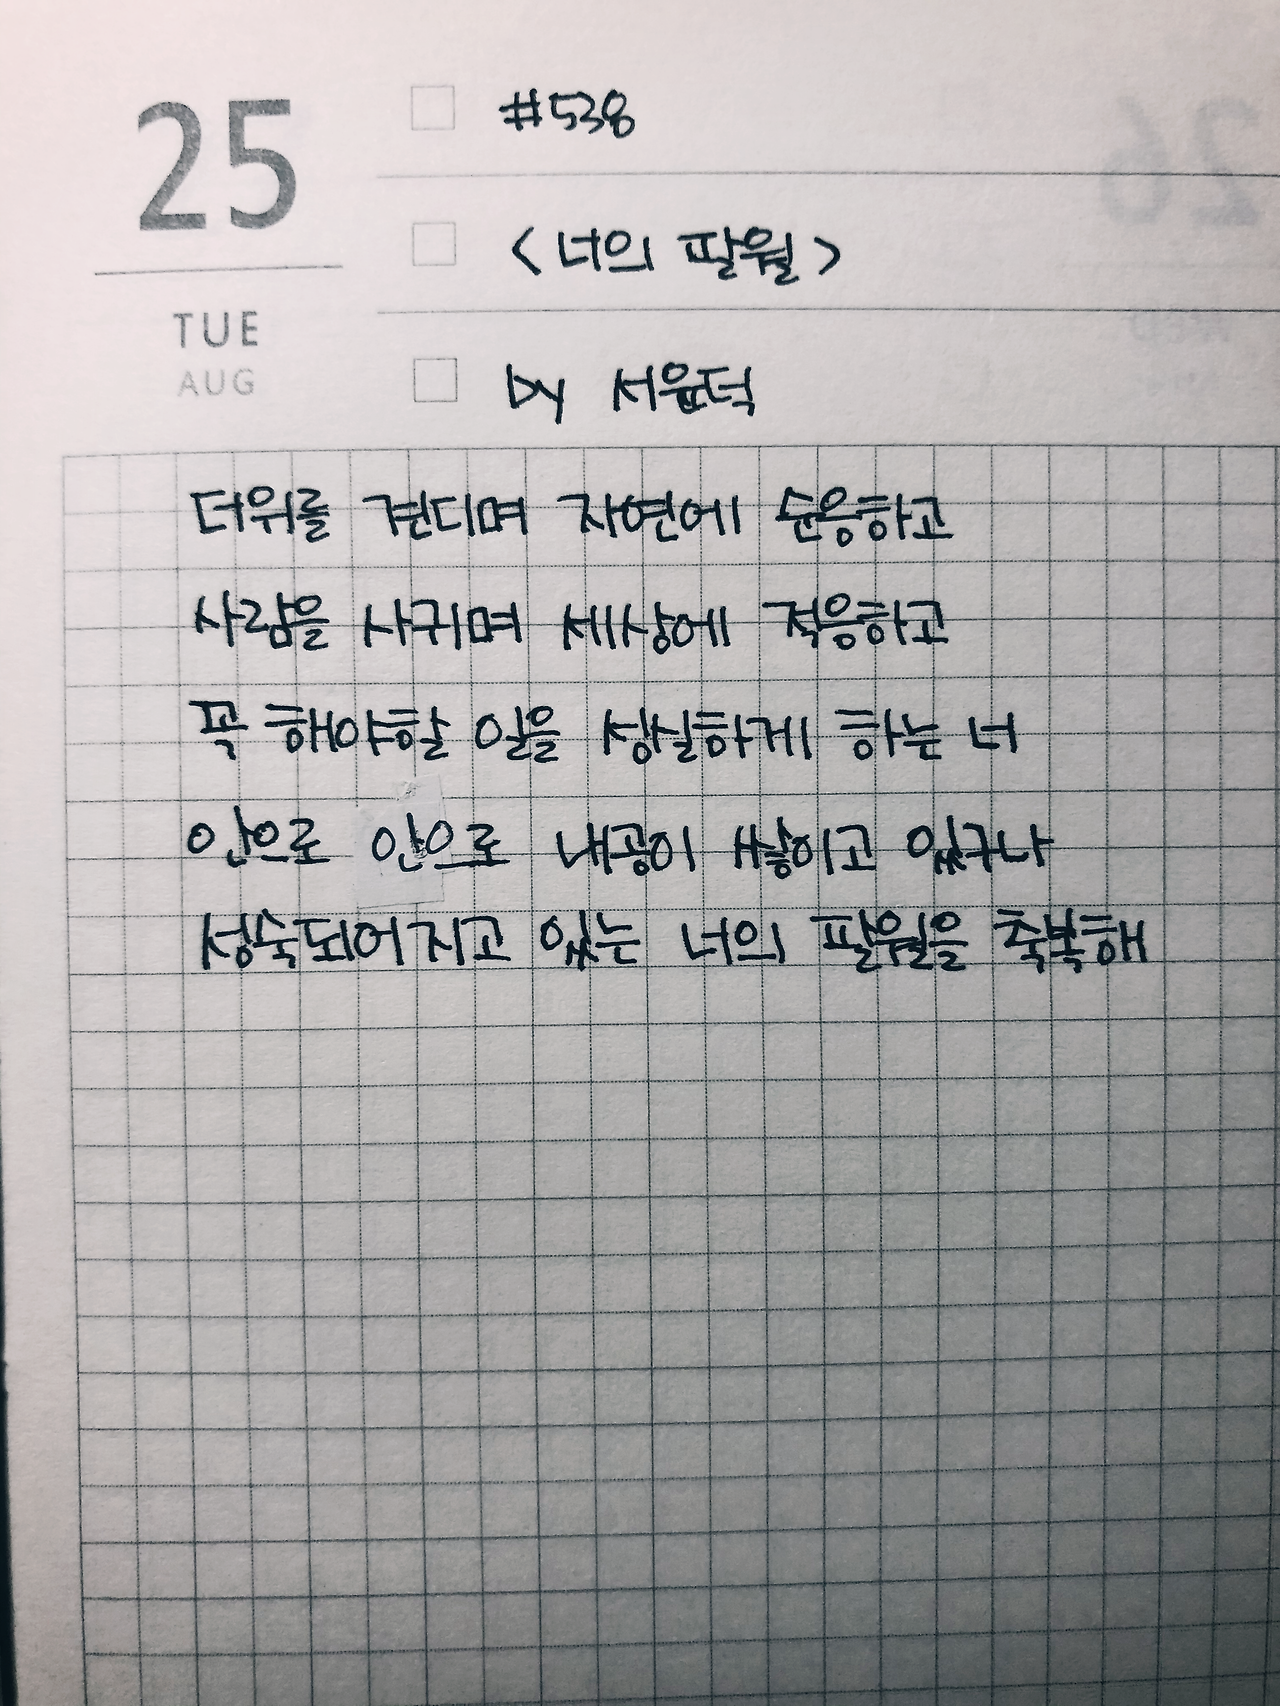 25
TUE
AUG
#538
<너의 팔월>
by 서윤덕
더위를 견디며 자연에 순응하고
사람을 사귀며 세상에 적응하고
꼭 해야할 일을 성실하게 하는 너
안으로 안으로 내공이 쌓이고 있구나
성숙되어지고 있는 너의 팔월을 축복해
26